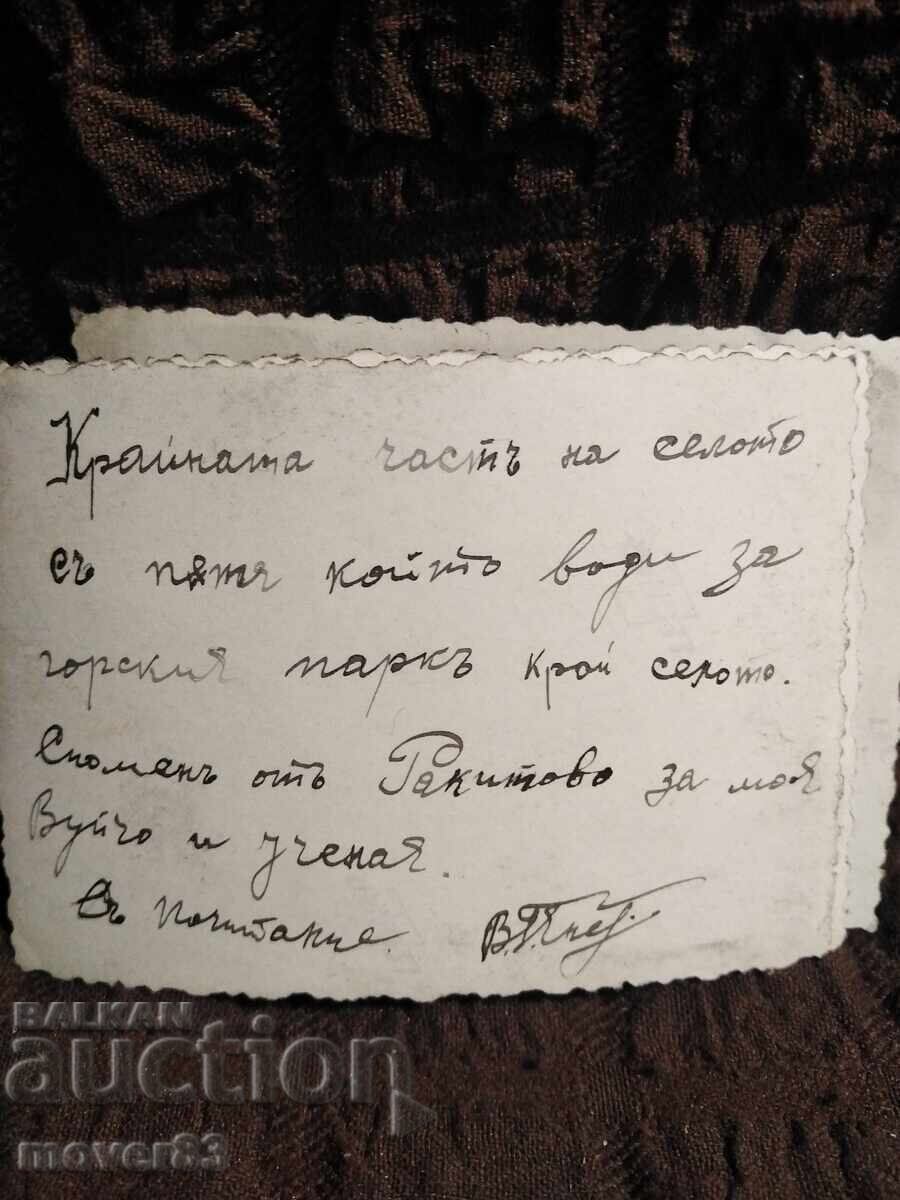 Крайната частъ на селото
съ пѫть който води за
горския паркъ край селото.
Споменъ отъ Ракитово за моя
Вуйчо и
Съ почитание.
BALKAN
auction
mover83